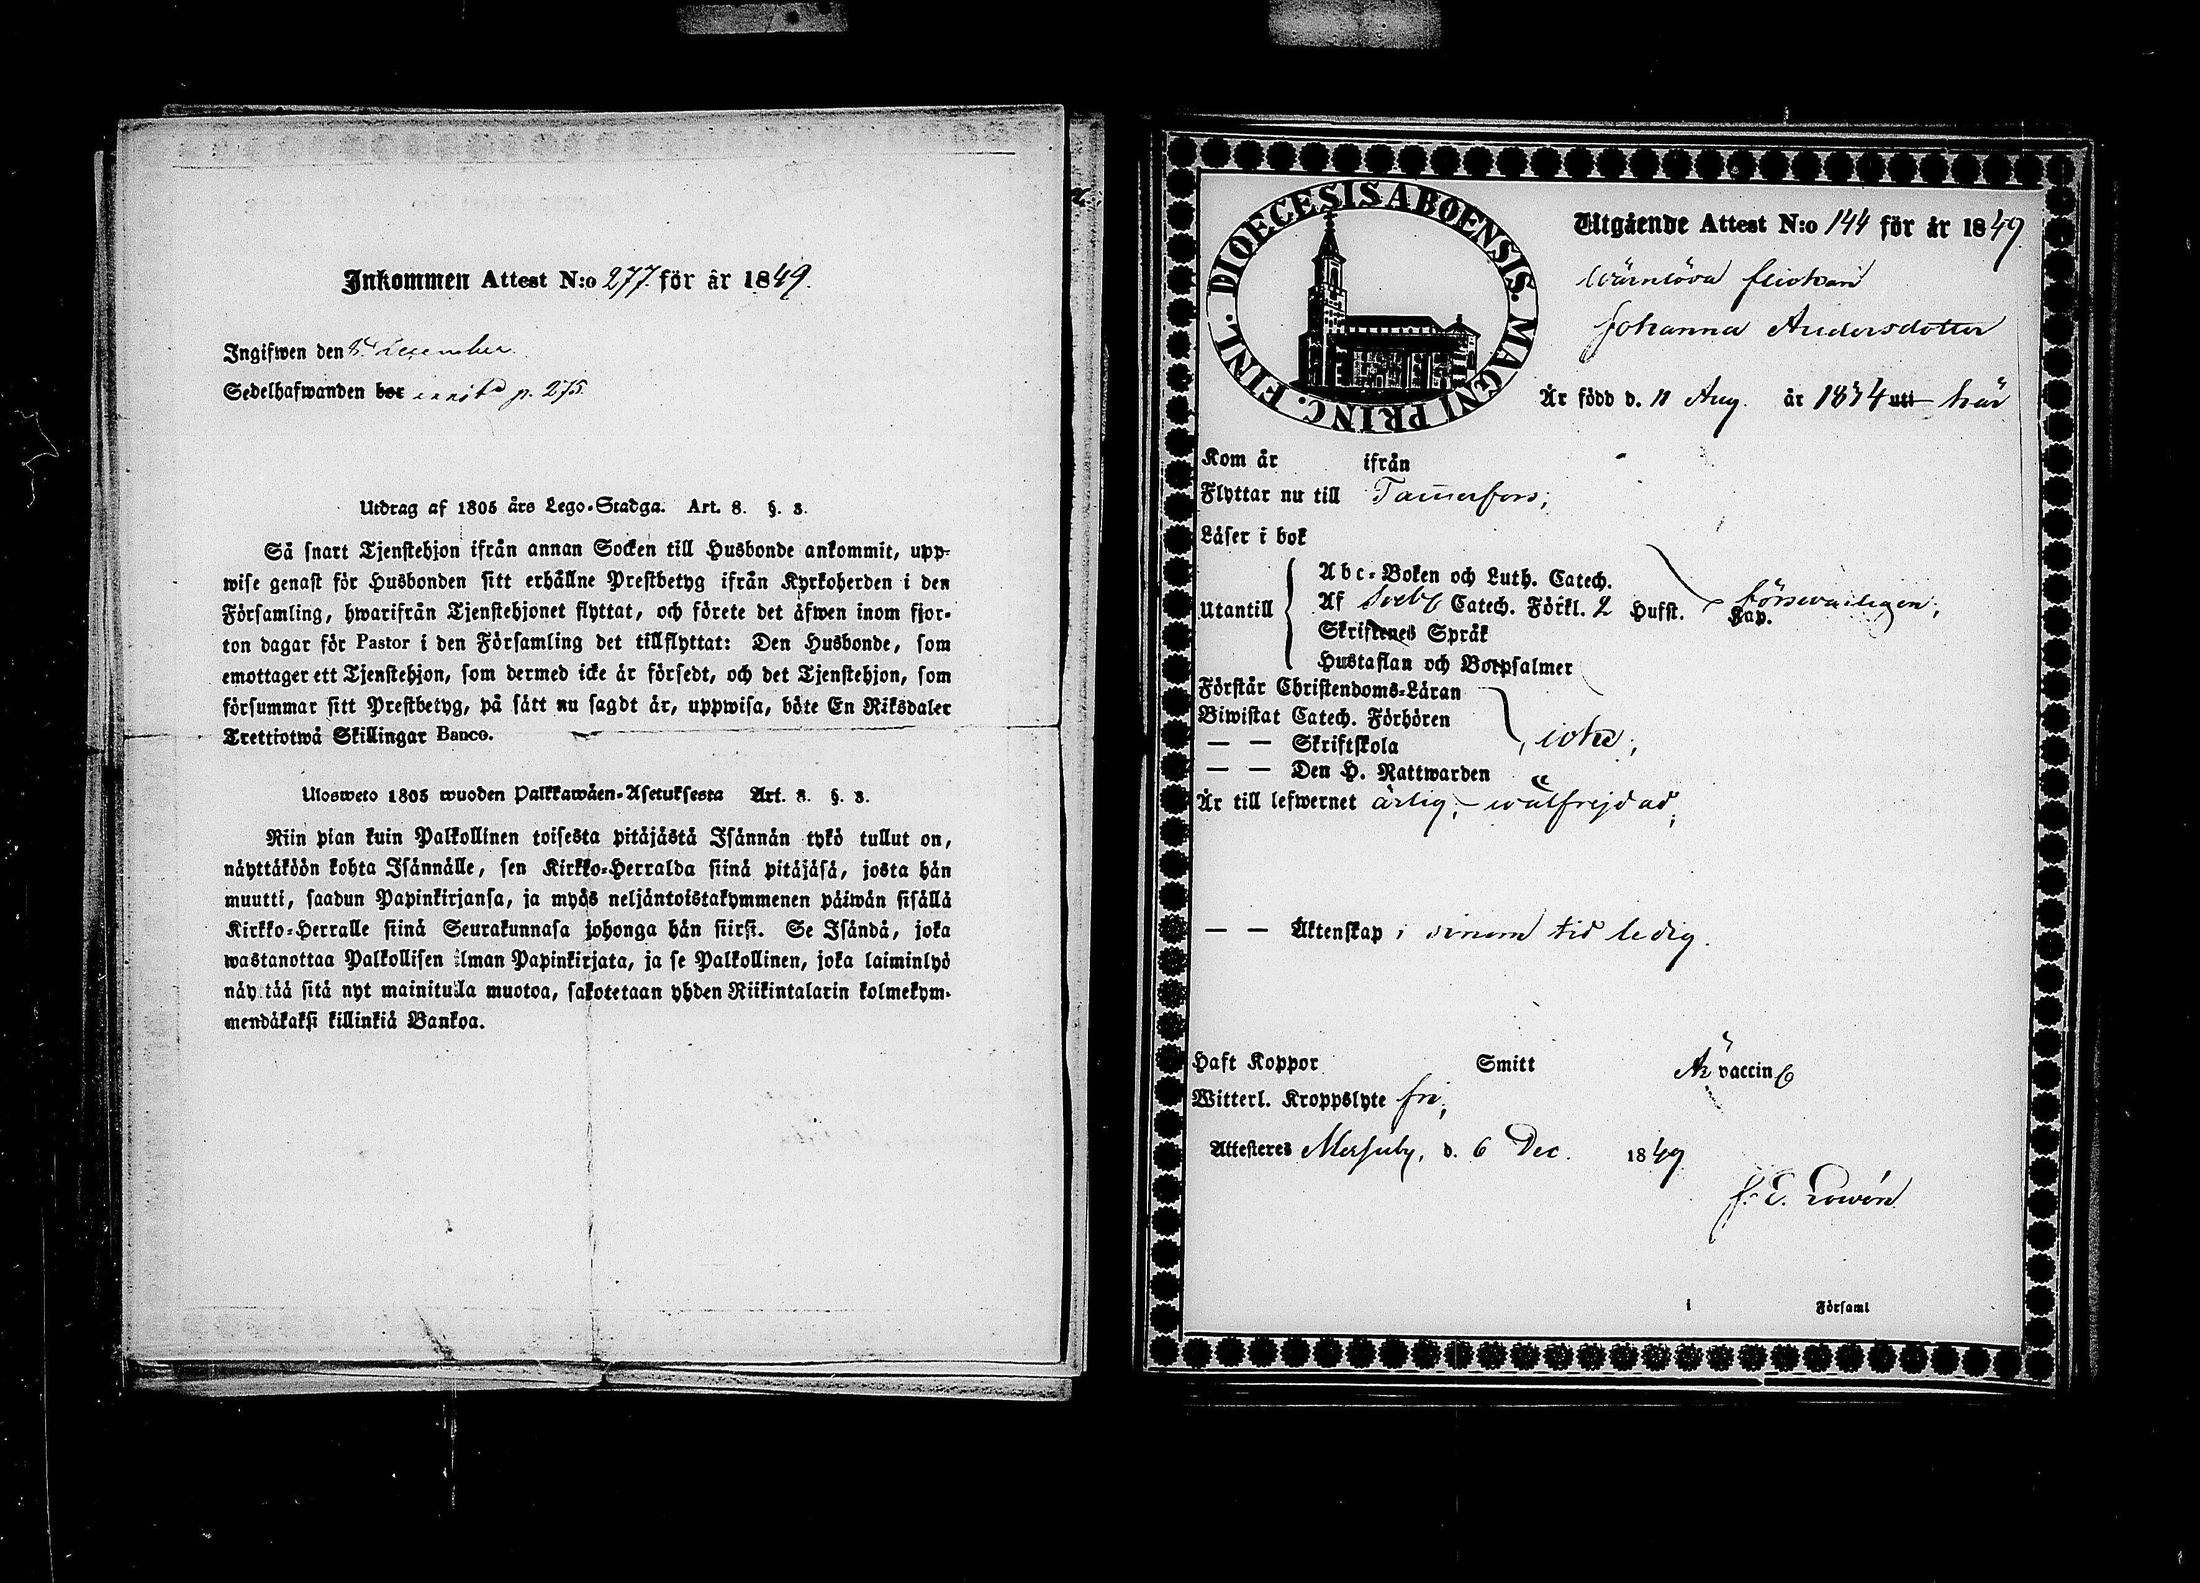 Inkommen Attest N:o 277 för år 1849.
Ingifwen den 8 December.
Sedelhafwanden bor p. 275.
Utdrag af 1805 års Lego-Stadga. Art. 8. §. 3.
Så snart Tjenstehjon ifrån annan Socken till Husbonde ankommit, upp-
wise genast för Husbonden sitt erhållne Prestbetyg ifrån Kyrkoherden i den
Församling, hwarifrån Tjenstehjonet flyttat, och förete det äfwen inom fjor-
ton dagar för Pastor i den Församling det tillflyttat: Den Husbonde, som
emottager ett Tjenstehjon, som dermed icke är försedt, och det Tjenstehjon, som
försummar sitt Prestbetyg, på sätt nu sagdt är, uppwisa, böte En Riksdaler
Trettiotwå Skillingar Banco.
Ulosweto 1805 wuoden Palkkawäen-Asetuksesta Art. 8. §. 3.
Niin pian kuin Palkollinen toisesta pitäjästä Isännän tykö tullut on,
näyttäköön kohta Isännälle, sen Kirkko-Herralda siinä pitäjäsä, josta hän
muutti, saadun Papinkirjansa, ja myös neljäntoistakymmenen päiwän sisällä
Kirkko-Herralle siinä Seurakunnasa johonga hän siirsi. Se Isändä, joka
wastanottaa Palkollisen ilman Papinkirjata, ja se Palkollinen, joka laiminlyö
näyttää sitä nyt mainitulla muotoa, sakotetaan yhden Riikintalarin kolmekym-
mendäkaksi killinkiä Bankoa.
DIOECESIS ABOENSIS. MAGNI PRINC. FINL.
Utgående Attest N:o 144 för år 1849.
Wärnlösa flickan
Johanna Andersdotter
Är född d. 11 Aug. år 1834 uti här
Kom år ifrån
Flyttar nu till Tammerfors;
Läser i bok
Utantill
Abc-Boken och Luth. Catech.
Af Sveb. Catech. Förkl. 2 Hufst. Kap. försvarligen;
Skriftenes Språk
Hustaflan och Botpsalmer
Förstår Christendoms-Läran
Biwistat Catech. Förhören
— — Skriftskola icke;
— — Den H. Nattwarden
Är till lefwernet ärlig, wälfrejdad;
— — Äktenskap i sinom tid ledig.
Haft Koppor Smitt Är vaccin
Witterl. Kroppslyte fri;
Attesteres d. 6 Dec. 1849
i Församl